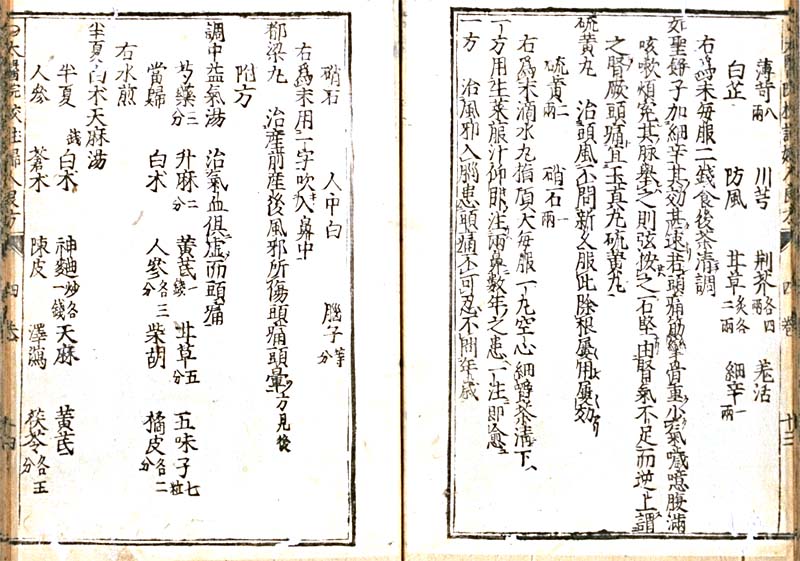 薄苛八兩　川芎　荆芥各四兩　羗活
白芷　防風　甘草炙各二兩　細辛一兩
右爲末每服二錢食後茶清調
如聖餅子加細辛其効甚速若頭痛筋攣骨重少氣噦噫腹滿
咳嗽煩寃其脉舉之則弦按之石堅由腎氣不足而逆上謂
之腎厥頭痛宜玉真丸硫黄丸
硫黄丸　治頭風不問新久服此除根屢用屢効
硫黄二兩　硝石一兩
右爲末滴水丸指頂大每服一丸空心細嚼茶清下
一方用生萊菔汁仰臥注兩鼻數年之患一注即愈
一方　治風邪入腦患頭痛不可忍不問年歲
硝石　人中白　腦子等分
右爲末用一字吹入鼻中
都梁丸　治産前産後風邪所傷頭痛頭暈方見後
附方
調中益氣湯　治氣血俱虛而頭痛
芍藥三分　升麻二分　黄芪一錢　甘草五分　五味子七粒
當歸　白朮　人參各三分　柴胡　橘皮各二分
右水煎
半夏白朮天麻湯
半夏　白朮　神麯炒各一錢　天麻　黄芪
人參　蒼朮　陳皮　澤瀉　茯苓各五分
四卷